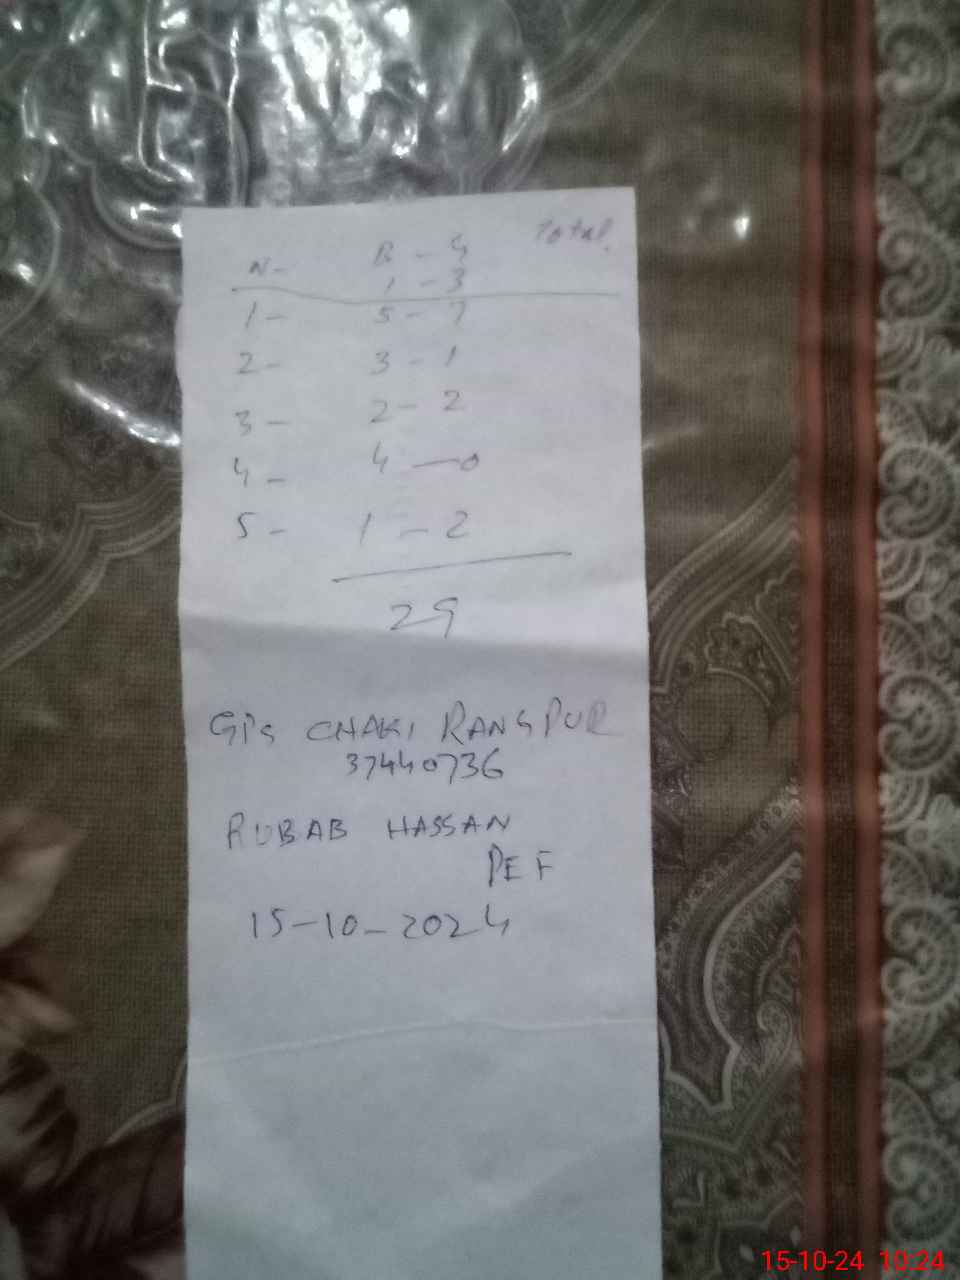 Total
N- B - G
1 - 3
1- 5 - 7
2- 3 - 1
3- 2 - 2
4- 4 - 0
5- 1 - 2
29
GPS CHAKI RANGPUR
37440736
RUBAB HASSAN
PEF
15-10-2024
15-10-24 10:24